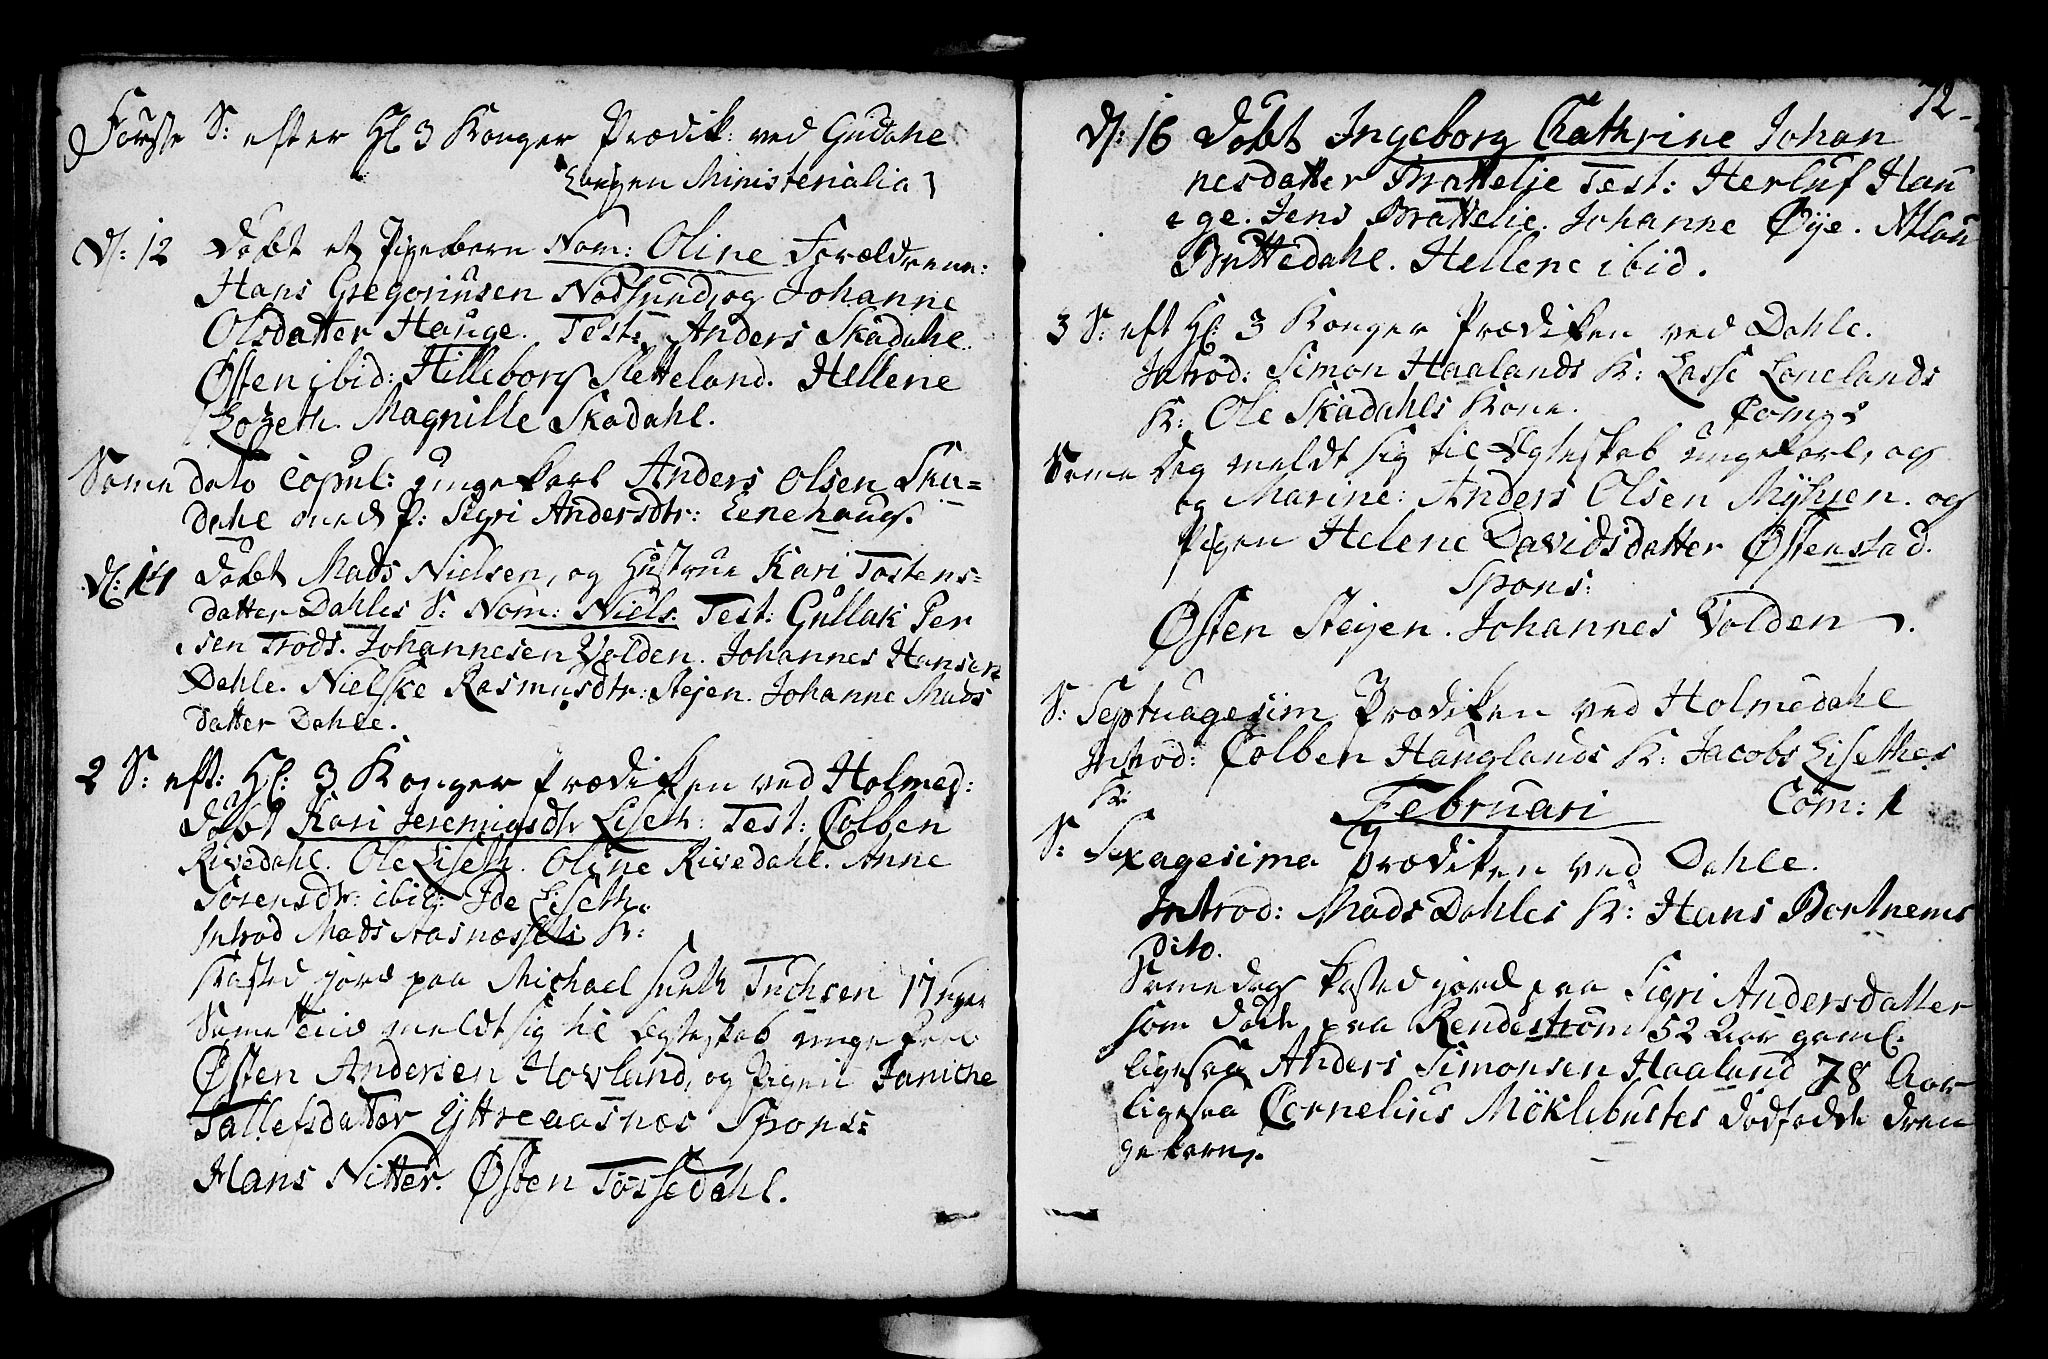 Første S: efter Hl 3 Konger Prædik: ved Guddahl
Ingen Ministerialia
D: 12 Døbt et Pigebarn Nom: Oline Forældrene:
Hans Gregoriusen Nødsund, og Johanne
Olsdatter Hauge. Test: Anders Skadahl.
Østen ibid: Hilleborg Sletteland. Hellene
Magnille Skadahl.
Samme dato Copul: ungekarl Anders Olsen Ska=
dahl med P: Sigri Andersdtr: Lenehaug.
D: 14 Døbt Mads Nielsen, og Hustrue Kari Tostens=
datter Dahles S: Nom: Niels. Test: Gullak Per
sen Trods. Johannesen Volden. Johannes Hansen
Dahle. Nielske Rasmusdtr: Steien. Johanne Mads
datter Dahle.
2 S: eft: Hl: 3 Konger Prædiken ved Holmed:
Døbt Kari Jeremiasdtr Liseth: Test: Colben
Rivedahl. Ole Liseth. Oline Rivedahl. Anne
Sørensdtr: ibid: Ide Liseth.
Introd Mads Aasnæssets K:
Kasted jord paa Michael Tuchsen 17 uger
Samme Tiid meldt sig til Ægteskab ungekarl
Østen Andersen Hovland, og Pigen Janiche
Tallefsdatter Ytreaasnæs Spons:
Hans Nitter. Østen Tossedahl.
72
D: 16 Døbt Ingeborg Chathrine Johan
nesdatter Brattelie Test: Herluf Hau
ge. Jens Brattelie. Johanne Øye.
Bruttedahl. Hellene ibid.
3 S: eft Hl: 3 Konger Prædiken ved Dahle.
Introd: Simon Haalands K: Lasse Lonelands
K: Ole Skadahls Kone.
Samme Dag meldt sig til Ægteskab ungekarl, og
og Marine: Anders Olsen og
Pigen Helene Davidsdatter Østenstad.
Spons:
Østen Steien. Johannes Volden.
S: Septuagesim Prædiken ved Holmedahl
Introd: Colben Hauglands K: Jacobs Lisethes
K:
Februari Com: 1
S: Sexagesima Prædiken ved Dahle.
Introd: Mads Dahles K: Hans Bortnems
dito.
Samme dag kasted jord paa Sigri Andersdatter
som døde paa Rendestrøm 52 Aar gaml.
ligesaa Anders Simonsen Haaland 78 Aar
ligesaa Cornelius Möklebustes dødfødde dren
gebarn.